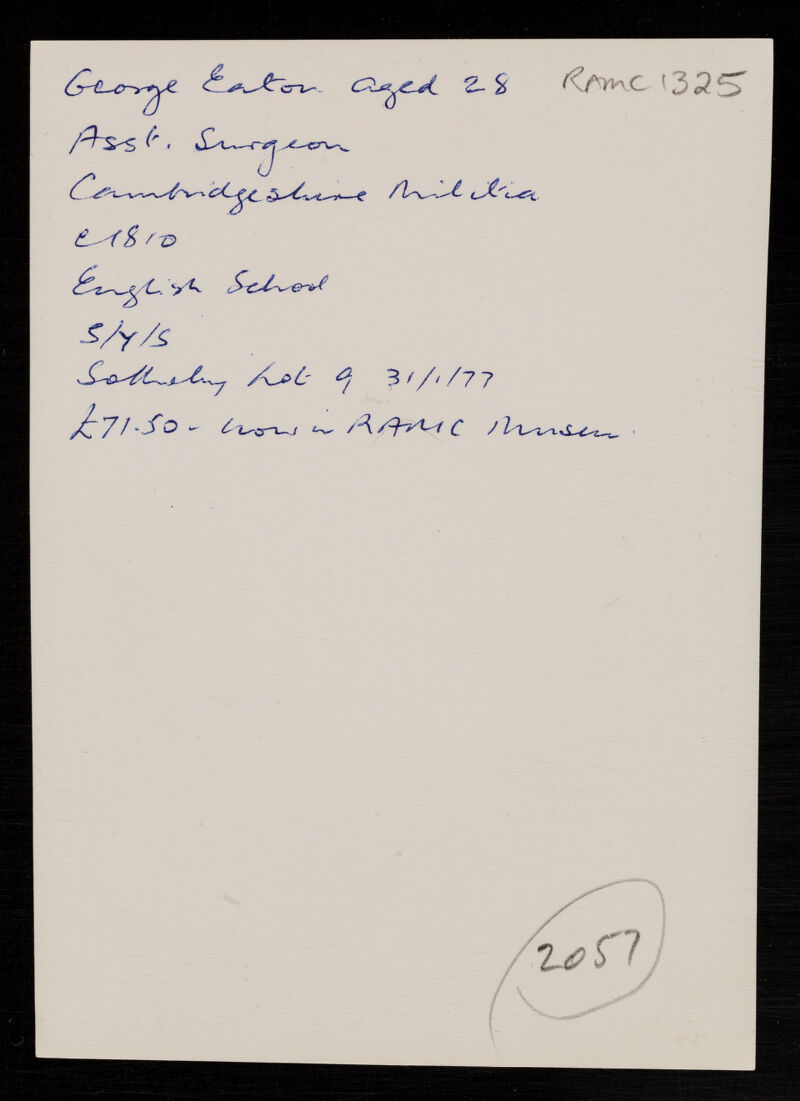 George Eaton aged 28 RAMC 1325
Asst. Surgeon
Cambridgeshire Militia
c1810
English School
S/Y/S
Sotheby Lot 9 31/1/77
£71.50 - now in RAMC Museum.
2057